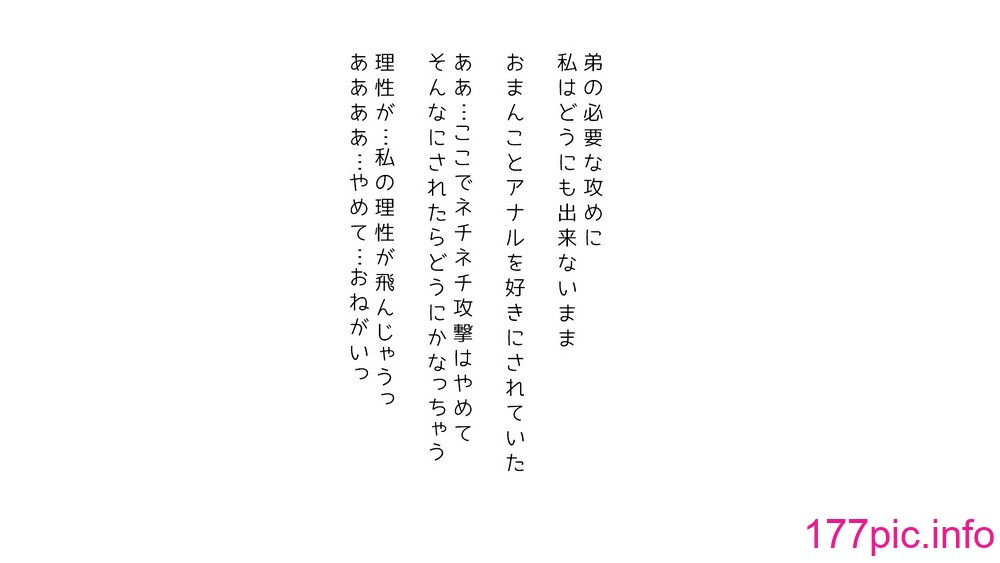 弟の必要な攻めに
私はどうにも出来ないまま
おまんことアナルを好きにされていた
ああ…ここでネチネチ攻撃はやめて
そんなにされたらどうにかなっちゃう
理性が…私の理性が飛んじゃうっ
ああああ…やめて…おねがいっ
177pic.info